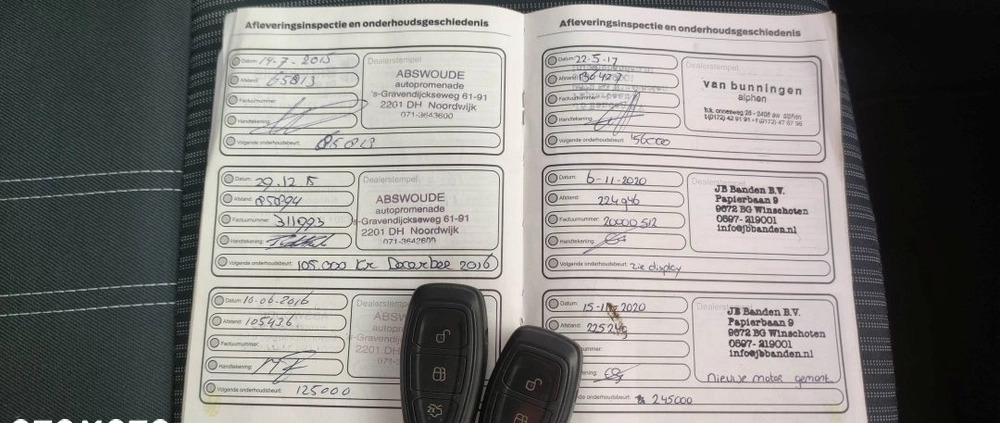 Afleveringsinspectie en onderhoudsgeschiedenis
Datum: 14-7-2015
Afstand: 65813
Factuurnummer:
Handtekening:
Volgende onderhoudsbeurt: 85813
Dealerstempel
ABSWOUDE
autopromenade
's-Gravendijckseweg 61-91
2201 DH Noordwijk
071-3643600
Datum: 29.12 15
Afstand: 85894
Factuurnummer: 311993
Handtekening:
Volgende onderhoudsbeurt: 105.000 Km December 2016
Dealerstempel
ABSWOUDE
autopromenade
's-Gravendijckseweg 61-91
2201 DH Noordwijk
071-3642600
Datum: 16-06-2016
Afstand: 105426
Factuurnummer:
Handtekening:
Volgende onderhoudsbeurt: 125000
Dealerstempel
ABSW
autop
's-Graven
2201 D
071-
Afleveringsinspectie en onderhoudsgeschiedenis
Datum: 22-5-17
Afstand: 136427
Factuurnummer:
Handtekening:
Volgende onderhoudsbeurt: 156000
Dealerstempel
van bunningen
alphen
Datum: 6-11-2020
Afstand: 224946
Factuurnummer: 20000512
Handtekening:
Volgende onderhoudsbeurt: zie display
Dealerstempel
JB Banden B.V.
Papierbaan 9
9672 BG Winschoten
0597-219001
info@jbbanden.nl
Datum: 15-11-2020
Afstand: 225249
nummer:
kening:
de onderhoudsbeurt: 245000
Dealerstempel
JB Banden B.V.
Papierbaan 9
9672 BG Winschoten
0597-219001
info@jbbanden.nl
nieuwe motor gemont.